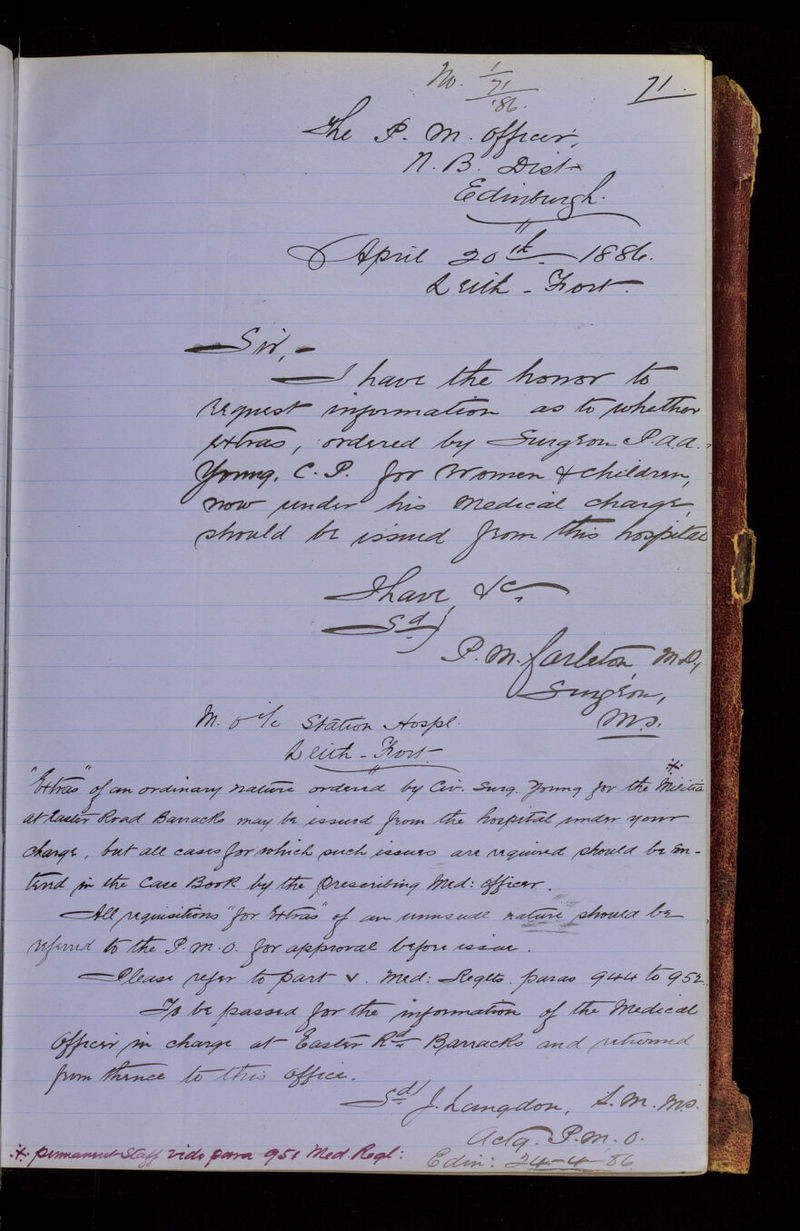 No. 1/71/'86.
71.
The P. M. Officer,
N. B. Dist
Edinburgh.
April 20th 1886.
Leith - Fort.
Sir, -
I have the honor to
request information as to whether
extras, ordered by Surgeon P.A.A.
Young, C. P. for Women & Children,
now under his Medical charge,
should be issued from this hospital
I have, &c.
Sd/
P. M. Carleton, M.D,
Surgeon,
M.S.
M. O i/c Station Hospl.
Leith - Fort
"Extras" of an ordinary nature ordered by Civ. Surg. Young for the Militia
at Easter Road Barracks may be issued from the hospital under your
charge, but all cases for which such issues are required should be en-
tered in the Case Book by the prescribing Med: Officer.
All requisitions "for Extras" of an unusual nature should be
referred to the P.M.O. for approval before issue.
Please refer to part V. Med: Reglts. paras 944 to 952.
To be passed for the information of the Medical
Officer in charge at Easter Rd. Barracks and returned
from thence to this office.
Sd/ J. Langdon, S.M. M.S.
Actg. P.M.O.
Edin: 24-4-86
permanent Staff vide para 951 Med. Regl: